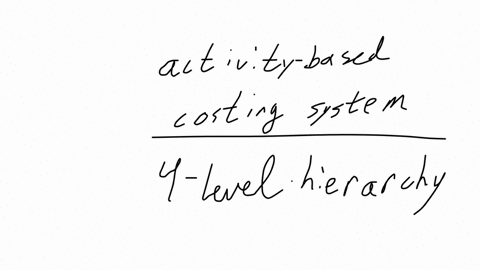 activity-based
costing system
4-level hierarchy